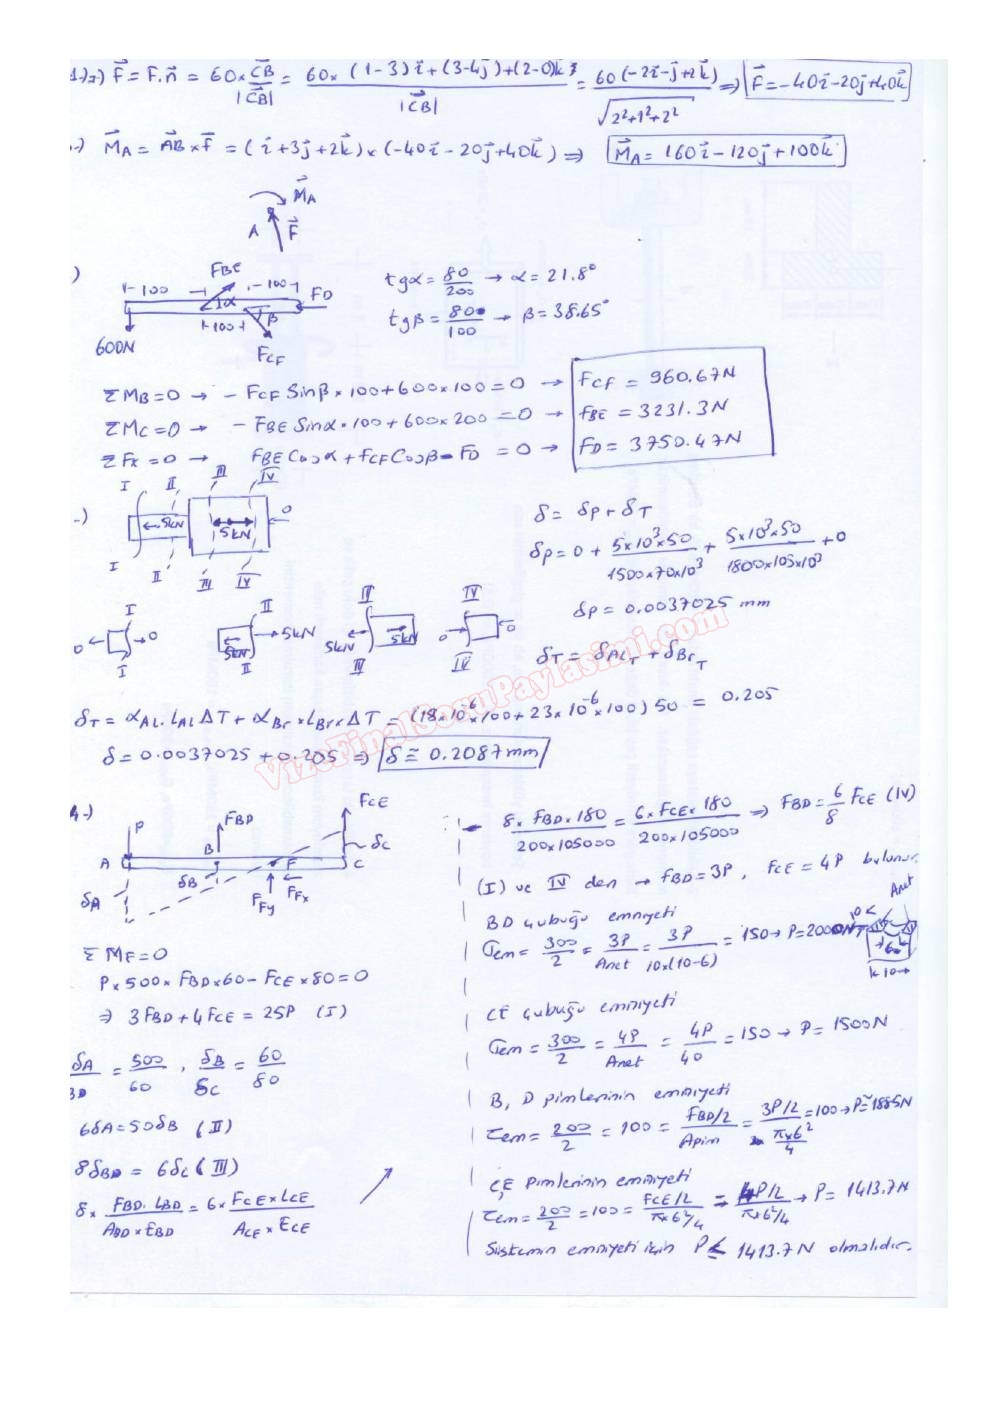 1-)a-) F = F.n = 60 x CB / |CB| = 60 x (1-3)i + (3-4j) + (2-0)k / |CB| = 60(-2i-j+2k) / √2²+1²+2² ⇒ F = -40i-20j+40k
.-) MA = AB x F = (i+3j+2k) x (-40i-20j+40k) ⇒ MA = 160i-120j+100k
MA
A F
)
FBE
100 100 FD
α
100 β
600N
FCF
tgα = 80/200 → α = 21.8°
tgβ = 80/100 → β = 38.65°
ΣMB=0 → -FCF Sinβ x 100 + 600 x 100 = 0 → FCF = 960.67N
ΣMC=0 → -FBE Sinα . 100 + 600 x 200 = 0 → FBE = 3231.3N
ΣFx=0 → FBE Cosα + FCF Cosβ - FD = 0 → FD = 3750.47N
I II III IV
.-) 5kN 5kN 0
I II III IV
δ = δP + δT
δP = 0 + 5x10³x50 / 1500x70x10³ + 5x10³x50 / 1800x105x10³ + 0
δP = 0.0037025 mm
I II III IV
0 0 5kN 5kN 5kN 5kN 0 0
I II III IV
δT = δALT + δBrT
δT = αAL . LAL ΔT + αBr x LBr x ΔT = (18x10⁻⁶x100 + 23x10⁻⁶x100) 50 = 0.205
δ = 0.0037025 + 0.205 ⇒ δ ≅ 0.2087mm
VizeFinalSoruPaylasimi.com
4-)
P FBD FCE
A B F C
δA δB δC
FFy FFx
ΣMF=0
Px500x FBDx60 - FCE x80=0
⇒ 3FBD + 4FCE = 25P (I)
δA / BD = 500/60 , δB / δC = 60/80
6δA = 50δB (II)
8δBD = 6δC (III)
8 x FBD . LBD / ABD x EBD = 6 x FCE x LCE / ACE x ECE
8 x FBD x 180 / 200x105000 = 6 x FCE x 180 / 200x105000 ⇒ FBD = 6/8 FCE (IV)
(I) ve IV den → FBD=3P, FCE = 4P bulunur
BD çubuğu emniyeti
σem = 300/2 = 3P/Anet = 3P/10x(10-6) = 150 → P=2000N
Anet
10
6
10
CE çubuğu emniyeti
σem = 300/2 = 4P/Anet = 4P/40 = 150 → P= 1500N
B, D pimlerinin emniyeti
τem = 200/2 = 100 = FBD/2 / Apim = 3P/2 / πx6²/4 = 100 → P≅1885N
C,E Pimlerinin emniyeti
τem = 200/2 = 100 = FCE/2 / πx6²/4 = 4P/2 / πx6²/4 → P= 1413.7N
Sistemin emniyeti için P ≤ 1413.7N olmalıdır.